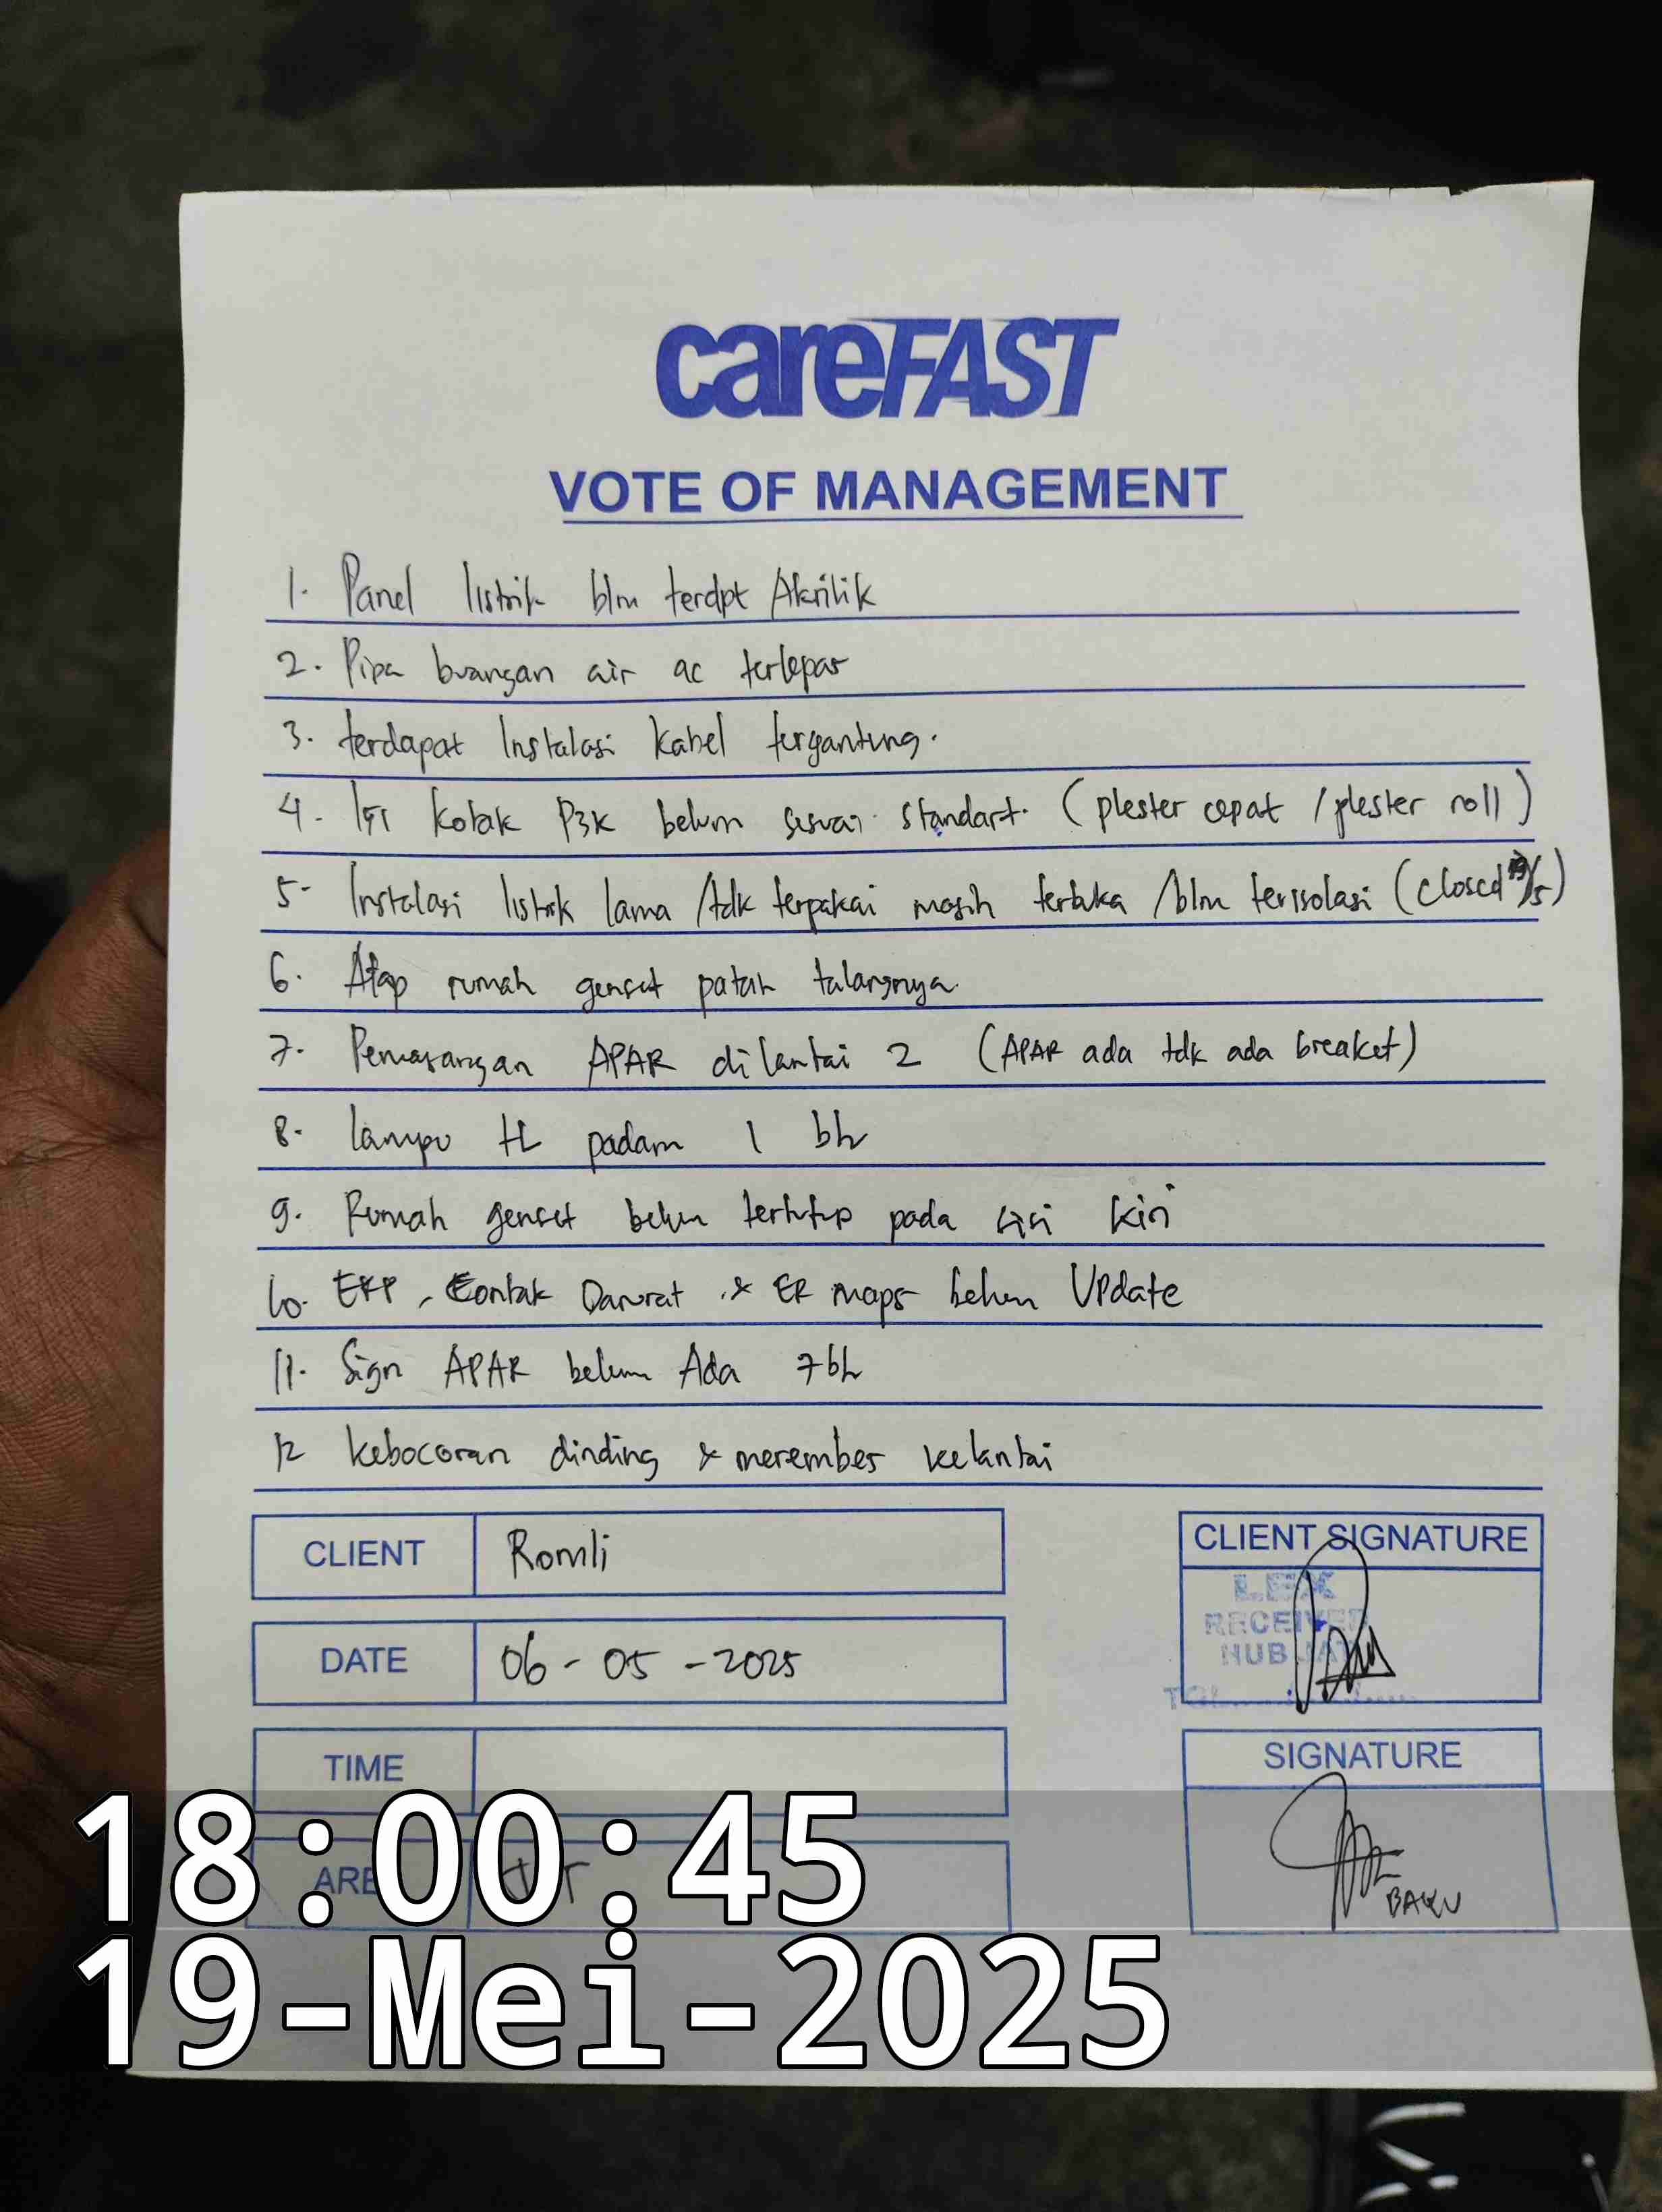 careFAST
VOTE OF MANAGEMENT
1. Panel listrik blm terdpt Akrilik
2. Pipa buangan air ac terlepas
3. terdapat Instalasi kabel tergantung.
4. Isi kotak P3K belum sesuai standart. (plester cepat / plester roll)
5- Instalasi listrik lama /tdk terpakai masih terbuka /blm terisolasi (closed 19/5)
6. Atap rumah genset patah talangnya.
7. Pemasangan APAR dilantai 2 (APAR ada tdk ada breaket)
8. lampu TL padam 1 bh
9. Rumah genset belum tertutup pada sisi kiri
10. ERP, Contak Darurat & ER maps belum Update
11. Sign APAR belum Ada 7bh
12 kebocoran dinding & merembes kelantai
CLIENT Romli
CLIENT SIGNATURE
LEX
RECEIVED
HUB
DATE 06-05-2025
TIME
SIGNATURE
BAYU
18:00:45
19-Mei-2025